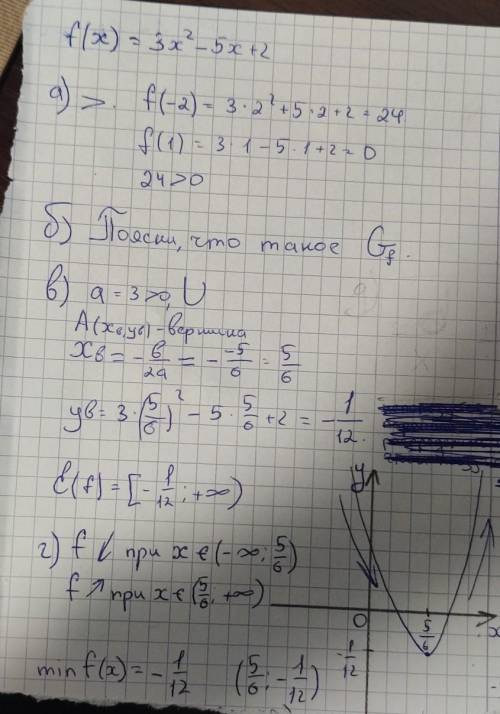 f(x) = 3x² - 5x + 2
а) >. f(-2) = 3 · 2² + 5 · 2 + 2 = 24
f(1) = 3 · 1 - 5 · 1 + 2 = 0
24 > 0
б) Поясни, что такое G_f.
в) a = 3 > 0, U
A(xв, yв) - вершина
xв = -в/2a = - -5/6 = 5/6
yв = 3 · (5/6)² - 5 · 5/6 + 2 = -1/12.
E(f) = [-1/12; +∞)
г) f ↓ при x ∈ (-∞; 5/6)
f ↗ при x ∈ (5/6; +∞)
min f(x) = -1/12 (5/6; -1/12)
y
0
5/6
x
-1/12